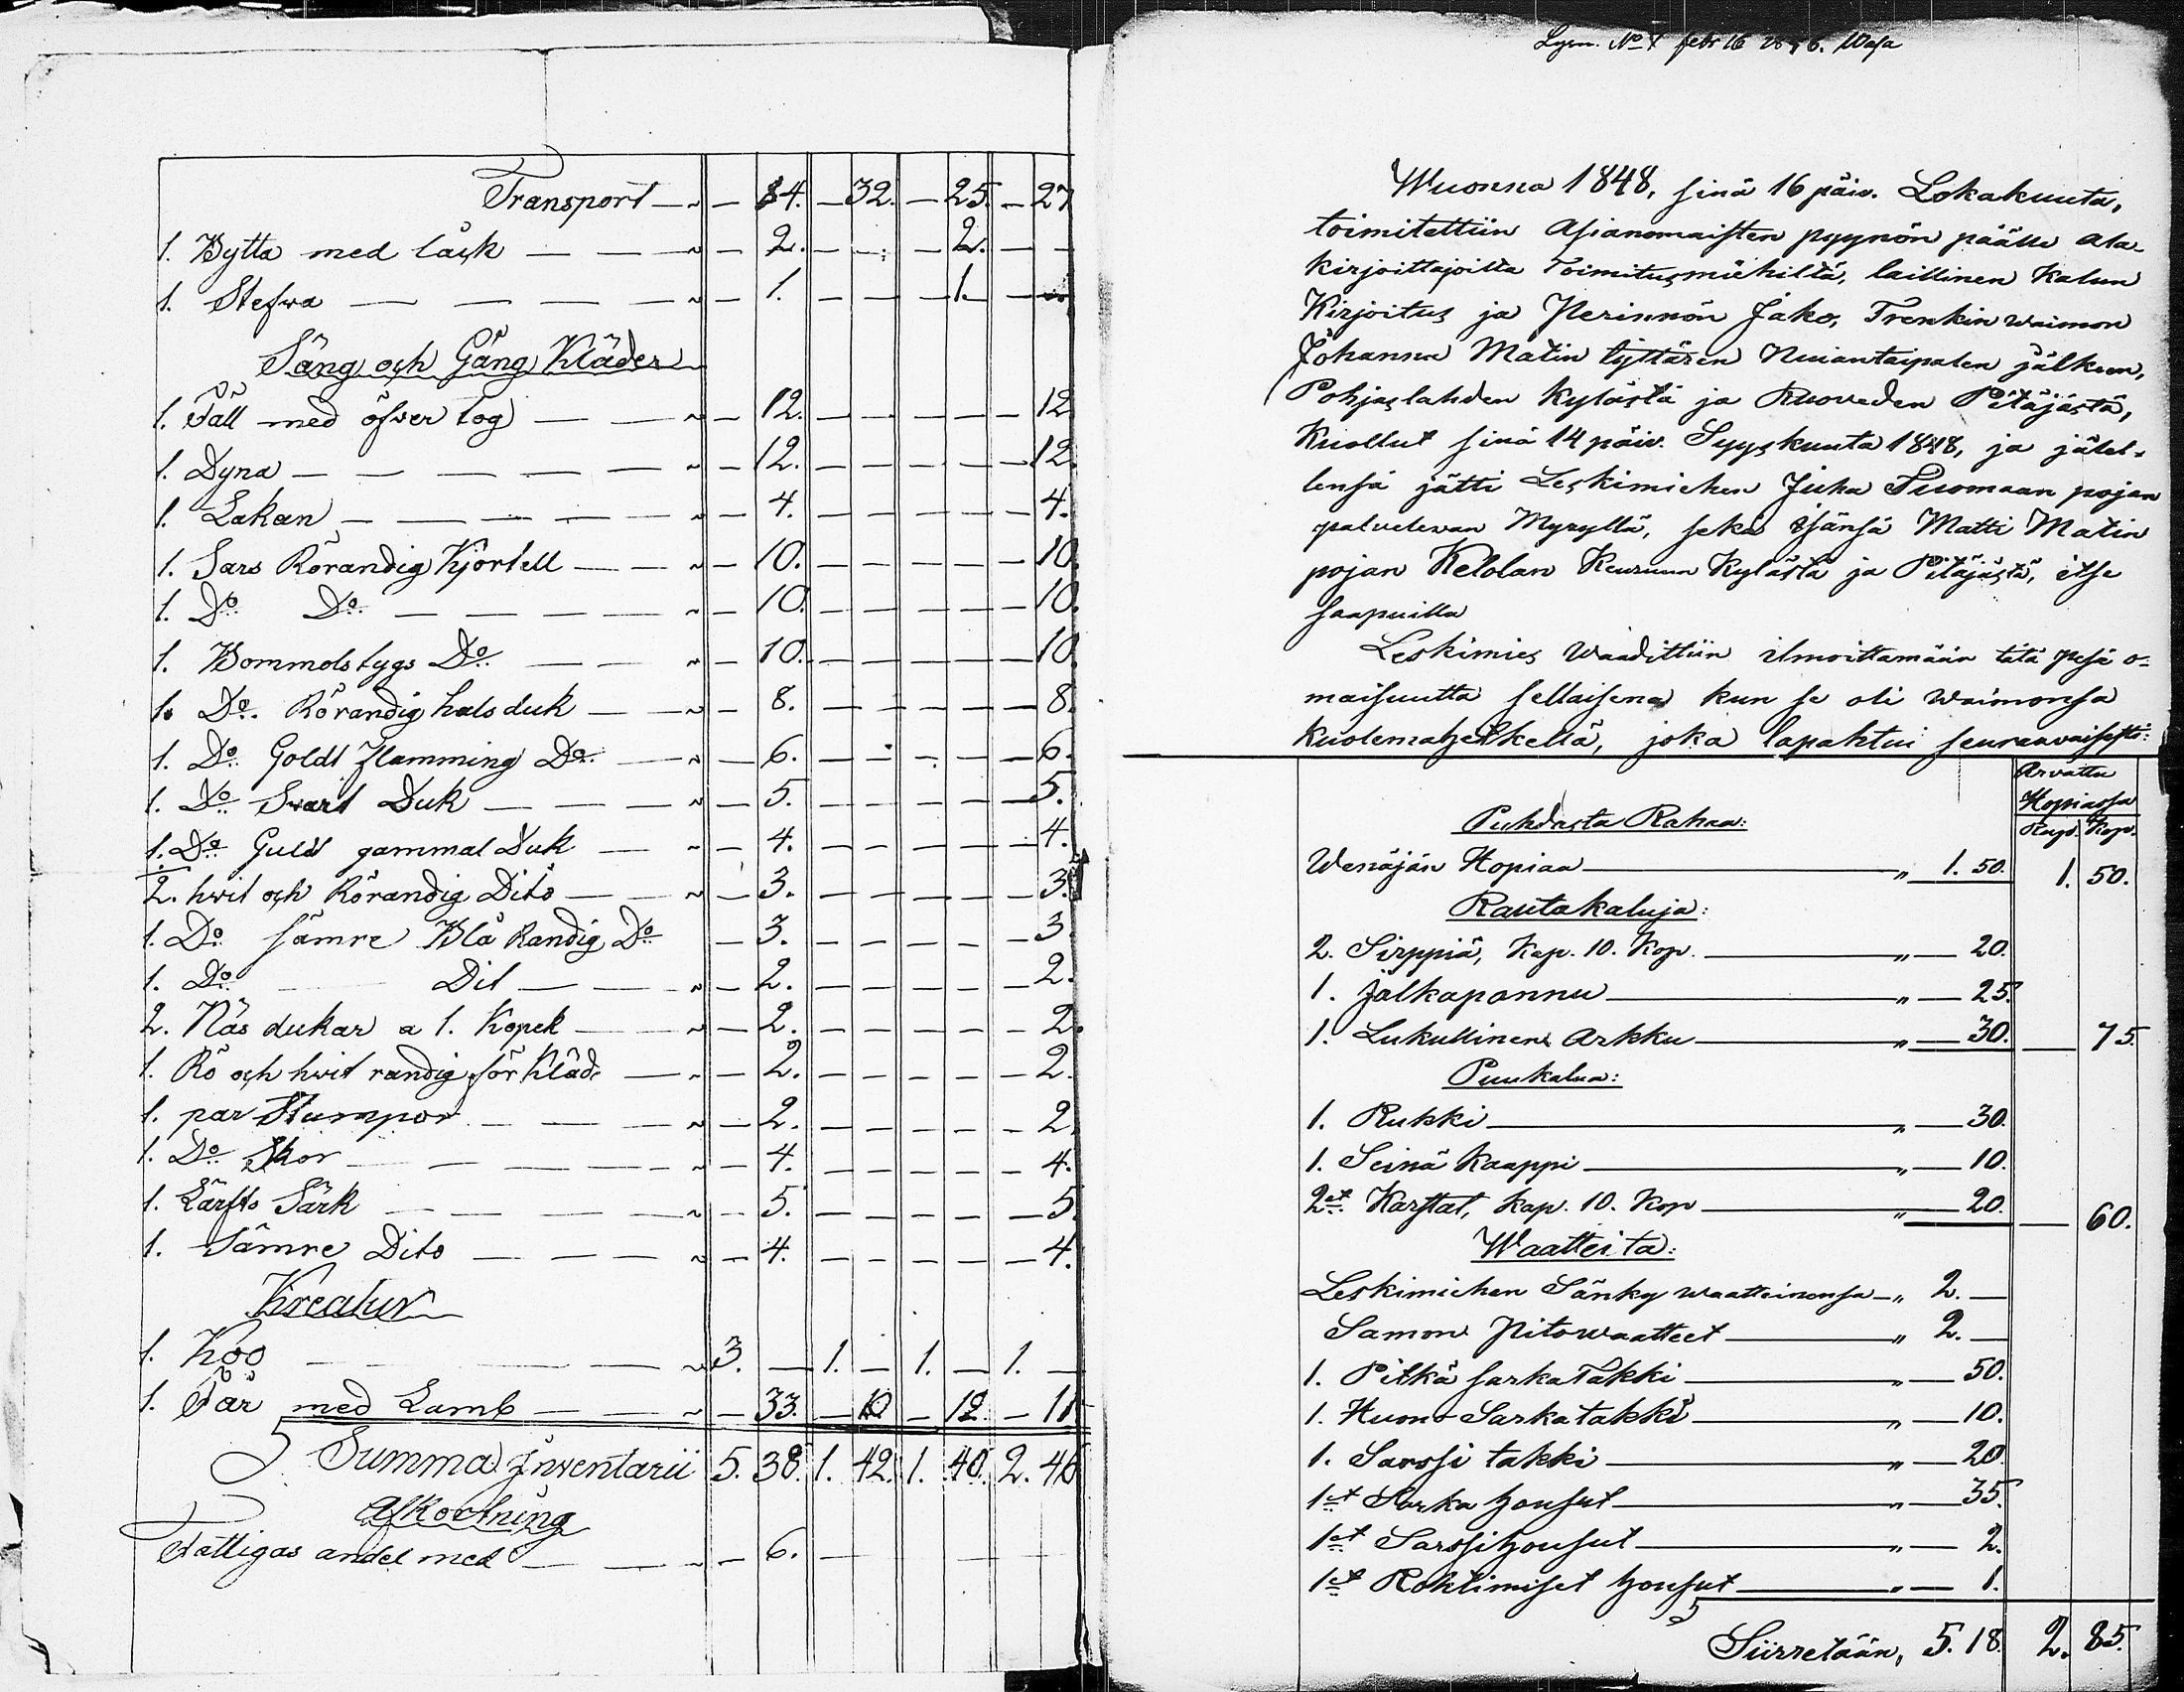 Transport — „ — 84. — 32. — 25. — 27
1. Bytta med låck — — „ — 2. — — — 2. — —
1. Stefva — — — — „ — 1. — — — 1. — —
Säng och Gång Kläder
1. Fäll med öfver tog — — „ — 12. — — — — — 12
1. Dyna — — — — „ — 12. — — — — — 12.
1. Lakan — — — — „ — 4. — — — — — 4.
1. Sars Rörandig Kjortell — — „ — 10. — — — — — 10.
1. Do Do — — — — „ — 10. — — — — — 10.
1. Bommols tygs Do — — „ — 10. — — — — — 10
1. Do. Rörandig halsduk — — „ — 8. — — — — — 8.
1. Do Goldt Flamming Do — „ — 6. — — — — — 6.
1. Do Svart Duk — — — „ — 5. — — — — — 5.
1. Do Guldt gammal Duk — „ — 4. — — — — — 4.
2. hvit och Rörandig Dito — — „ — 3. — — — — — 3.
1. Do sämre Blå Randig Do — 3. — — — — — 3
1. Do — Dit — — „ — 2. — — — — — 2.
2. Näs dukar a 1. Kopek — — „ — 2. — — — — — 2.
1. Rö och hvit randig förkläd. — „ — 2. — — — — — 2.
1. par Stumpor — — — „ — 2. — — — — — 2.
1. Do Skor — — — — „ — 4. — — — — — 4.
1. Lärfts Särk — — — — „ — 5. — — — — — 5.
1. Sämre Dito — — — „ — 4. — — — — — 4.
Kreatur
1. Koo — — — — „ 3. — 1. — 1. — 1. —
1. Får med Lamb — — „ — 33. — 10 — 12. — 11
Summa Inventarii 5. 38. 1. 42. 1. 40. 2. 46
Afkortning
Fattigas andel med — — „ — 6. —
Wuonna 1848, sinä 16 päiv. Lokakuuta,
toimitettiin Asianomaisten pyynön päälle ala-
kirjoittajoilta Toimitusmiehiltä, laillinen Kalun
Kirjoitus ja Perinnön Jako, Trenkin waimon
Johanna Matin tyttären Nuiantaipalen jälkeen,
Pohjaslahden Kylästä ja Ruoveden Pitäjästä,
Kuollut sinä 14 päiv. Syyskuuta 1848, ja jätel-
lensä jätti Leskimiehen Juha Tuomaan pojan
palvelevan Myryllä, sekä Isänsä Matti Matin
pojan Ketolan Keuruun Kylästä ja Pitäjästä, itse
saapuilla
Leskimies Waadittiin ilmoittamään tätä pesä o-
maisuutta sellaisena kun se oli waimonsa
Kuolemahetkellä, joka tapahtui seuraavaisesti:
Arvattu
Hopiassa
Rupl. Kop.
Puhdasta Rahaa:
Wenäjän Hopiaa — „ 1. 50. 1. 50.
Rautakaluja:
2. Sirppiä, Kap. 10. Kop. — „ — 20.
1. Jalkapannu — „ — 25.
1. Lukullinen Arkku — „ — 30. — 75.
Puukalua:
1. Rukki — „ — 30.
1. Seinä Kaappi — „ — 10.
2et Karstat, Kap. 10. Kop — „ — 20. — 60.
Waatteita:
Leskimiehen Sänky waatteinensa — „ 2. —
Samon Pitowaatteet — „ 2. —
1. Pitkä sarkatakki — „ — 50.
1. Huono Sarkatakki — „ — 10.
1. Sarssi takki — „ — 20.
1et Sarka housut — „ — 35.
1et Sarssihousut — „ — 2.
1et Rohtimiset housut — „ — 1.
Siirretään, 5. 18. 2. 85.